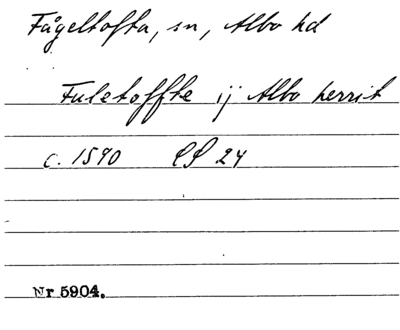 Fågeltofta, sn, Albo hd
Fuletoffte ij Albo herrit
c. 1590 LP 24
Nr 5904.